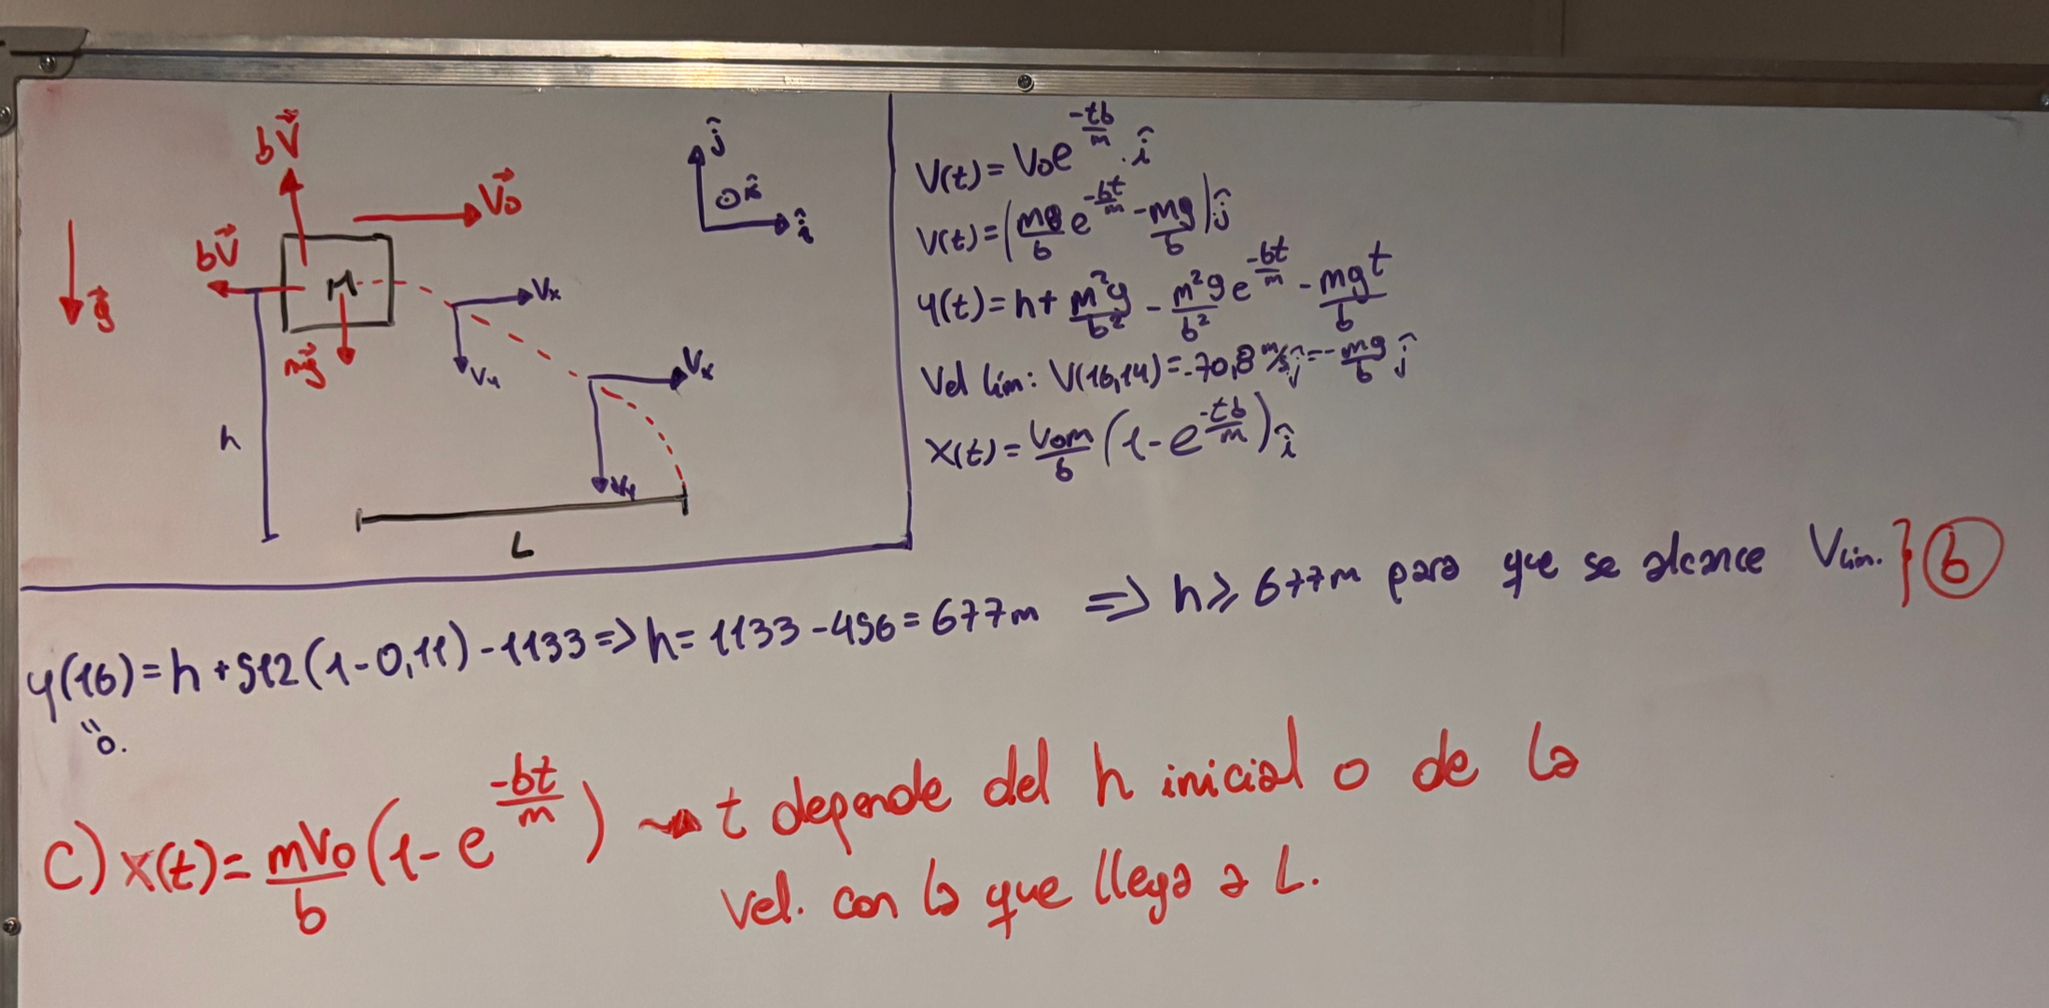 bV⃗
V⃗o
ĵ
⊙k̂
î
bV⃗
M
g⃗
mg⃗
Vx
Vy
Vx
Vy
h
L
V(t) = Vo e^(-tb/m) . î
V(t) = (mg/b e^(-bt/m) - mg/b) ĵ
y(t) = h + m²g/b² - m²g/b² e^(-bt/m) - mgt/b
Vel lím: V(16,14) = -70,8 m/s ĵ = -mg/b ĵ
X(t) = Vom/b (1 - e^(-tb/m)) î
y(16) = h + 512(1-0,11) - 1133 => h = 1133 - 456 = 677m => h ≥ 677m para que se alcance Vlim. } b
"o.
C) X(t) = mVo/b (1 - e^(-bt/m)) → t depende del h inicial o de la
vel. con la que llega a L.